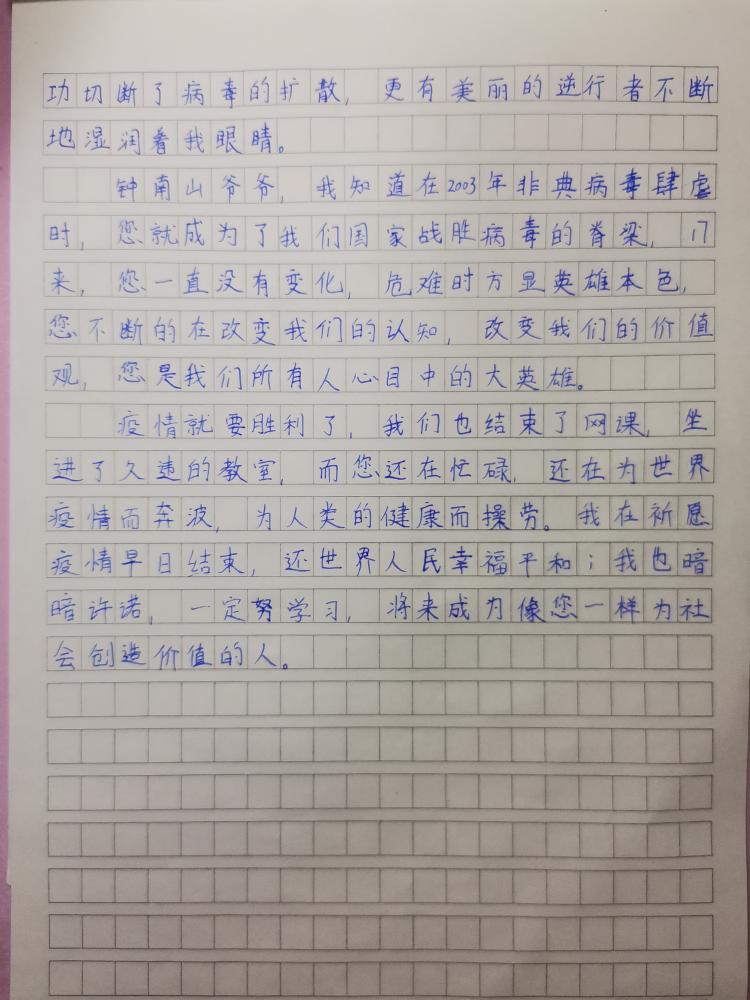 功切断了病毒的扩散，更有美丽的逆行者不断
地湿润着我眼睛。
钟南山爷爷，我知道在2003年非典病毒肆虐
时，您就成为了我们国家战胜病毒的脊梁，17
来，您一直没有变化，危难时方显英雄本色，
您不断的在改变我们的认知，改变我们的价值
观，您是我们所有人心目中的大英雄。
疫情就要胜利了，我们也结束了网课，坐
进了久违的教室，而您还在忙碌，还在为世界
疫情而奔波，为人类的健康而操劳。我在祈愿
疫情早日结束，还世界人民幸福平和；我也暗
暗许诺，一定努学习，将来成为像您一样为社
会创造价值的人。